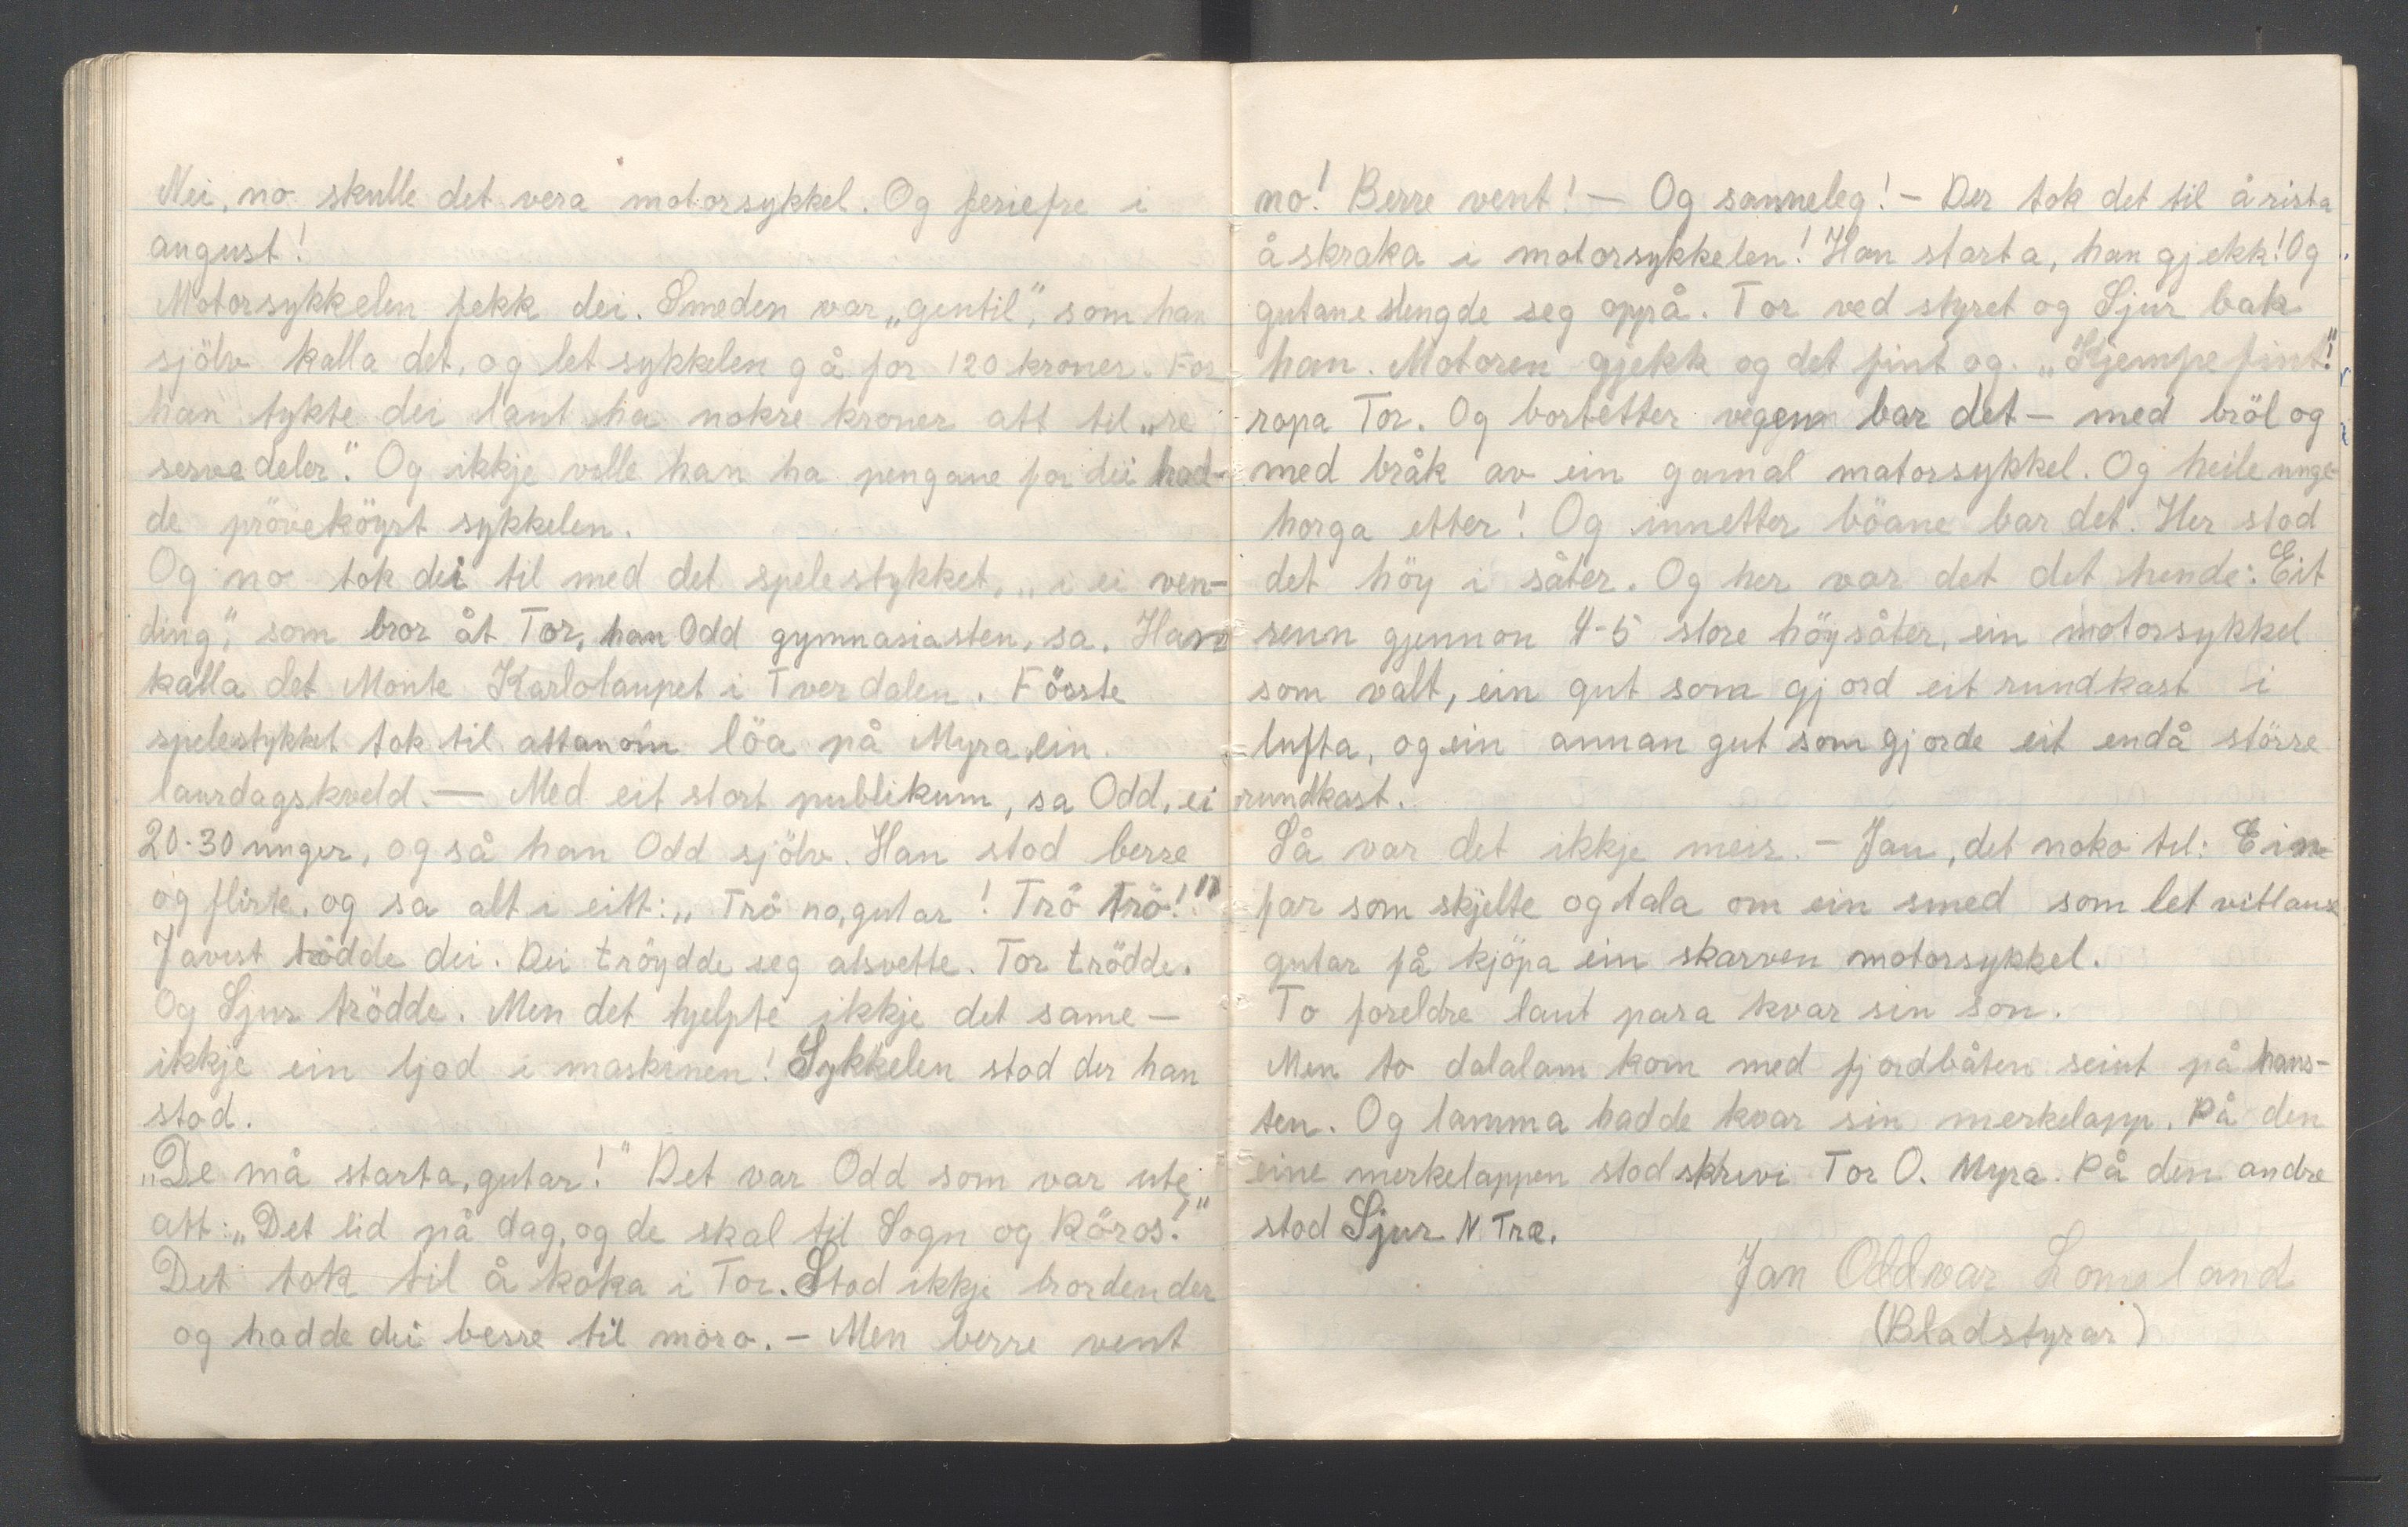 Nei, no skulle det vera motorsykkel. Og feriefre i
august!
Motorsykkelen fekk dei. Smeden var „gentil", som han
sjölv kalla det, og let sykkelen gå for 120 kroner. For
han tykte dei laut ha nokre kroner att til „re
servedeler". Og ikkje ville han ha pengane for dei had-
de pröveköyrt sykkelen.
Og no tok dei til med det spelestykket, „i ei ven-
ding", som bror åt Tor, han Odd gymnasiasten, sa. Han
kalla det Monte Karlolaupet i Tverdalen. Föoste
spelestykket tok til attanom löa på Myra, ein
laurdagskveld. — Med eit stort publikum, sa Odd, ei
20-30 unger, og så han Odd sjölv. Han stod berre
og flirte, og sa alt i eitt: „Trö no, gutar! Trö trö!"
Javist trödde dei. Dei tröydde seg alsvette. Tor trödde.
Og Sjur trödde. Men det hjelpte ikkje det same —
ikkje ein ljod i maskinen! Sykkelen stod der han
stod.
„De må starta, gutar!" Det var Odd som var ute
att: „Det lid på dag, og de skal til Sogn og Röros!"
Det tok til å koka i Tor. Stod ikkje broren der
og hadde dei berre til moro. – Men berre vent
no! Berre vent! – Og sanneleg! – Der tok det til å rista
å skraka i motorsykkelen! Han starta, han gjekk! Og
gutane slengde seg oppå. Tor ved styret og Sjur bak
han. Motoren gjekk og det fint og. „Kjempefint!"
ropa Tor. Og bortetter vegen bar det – med bröl og
med bråk av ein gamal motorsykkel. Og heile unge-
horga etter! Og innetter böane bar det. Her stod
det höy i såter. Og her var det det hende: Eit
renn gjennon 4-5 store höysåter, ein motorsykkel
som valt, ein gut som gjord eit rundkast i
lufta, og ein annan gut som gjorde eit endå större
rundkast.
Så var det ikkje meir. – Jau, det noko til: Ein
far som skjelte og tala om ein smed som let vitlause
gutar få kjöpa ein skarven motorsykkel.
To foreldre laut para kvar sin son.
Men to dalalam kom med fjordbåten seint på haus-
ten. Og lamma hadde kvar sin merkelapp. På den
eine merkelappen stod skrivi Tor O. Myra. På den andre
stod Sjur N Træ.
Jan Oddvar Lomeland
(Bladstyrar)